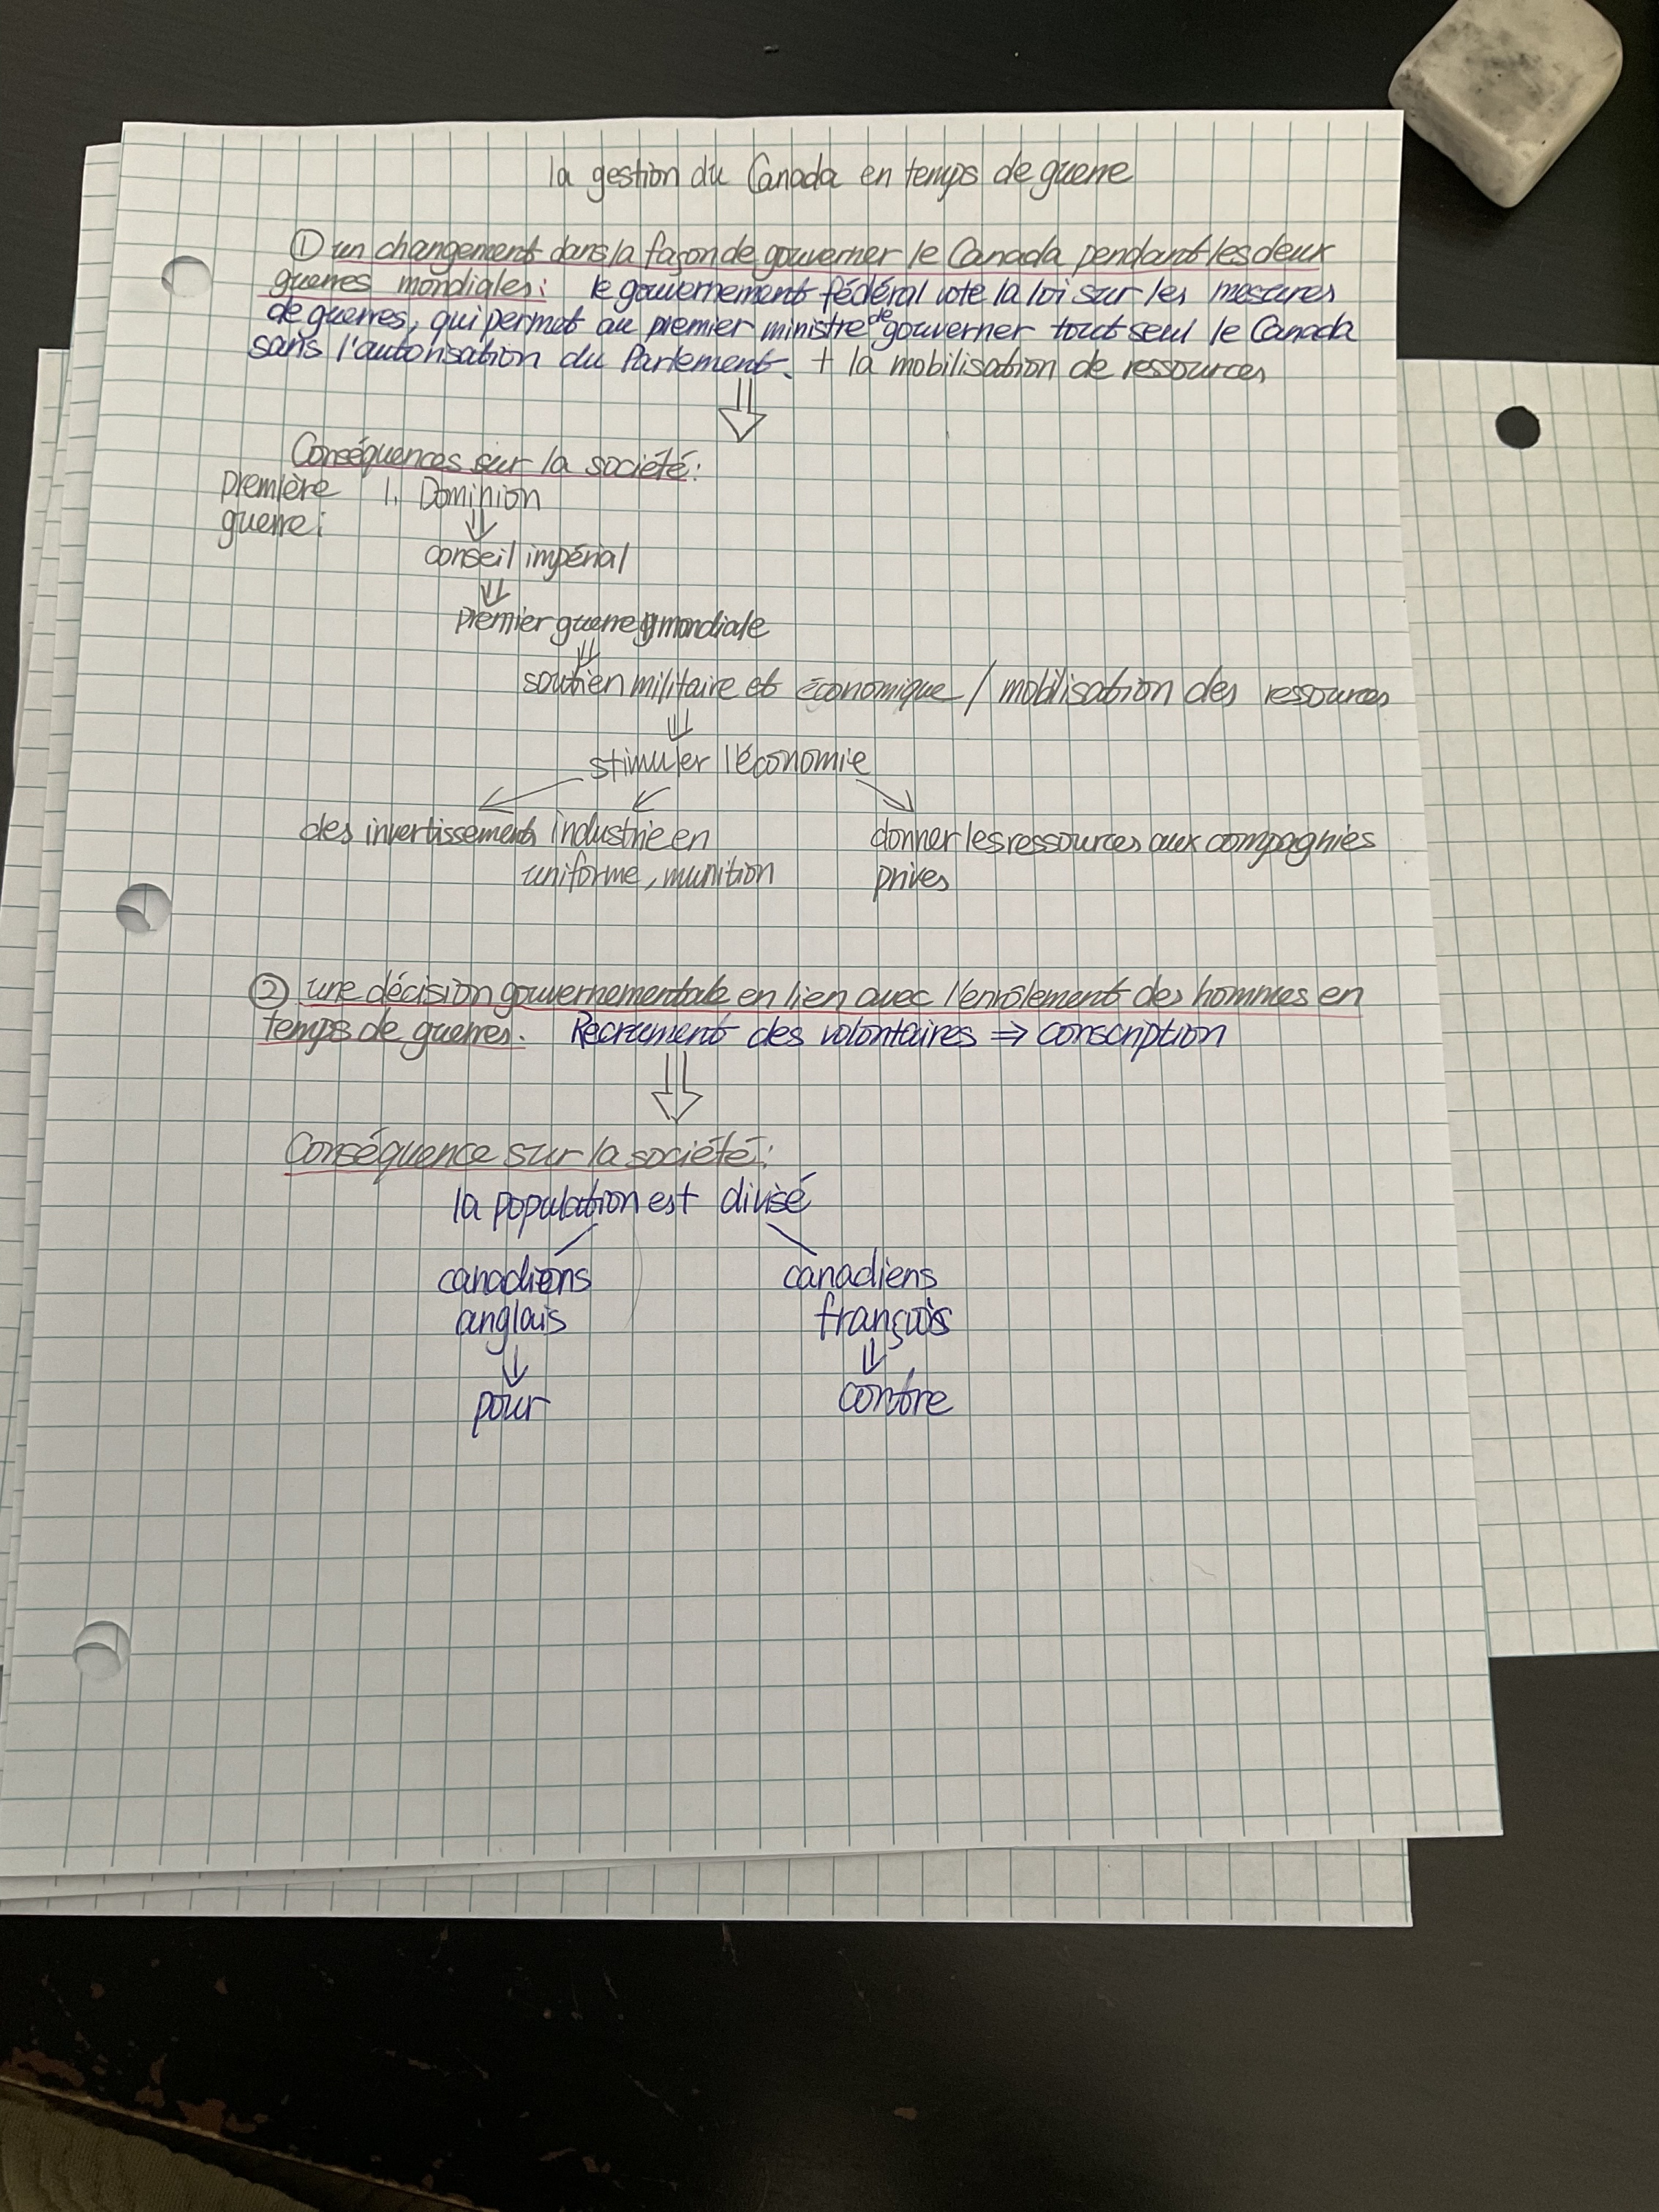 la gestion du Canada en temps de guerre
① un changement dans la façon de gouverner le Canada pendant les deux
guerres mondiales: le gouvernement fédéral vote la loi sur les mesures
de guerres, qui permet au premier ministre de gouverner tout seul le Canada
sans l'autorisation du Parlement. + la mobilisation de ressources
⇓
Conséquences sur la société:
première 1. Dominion
guerre:
⇓
conseil impérial
⇓
premier guerre mondiale
⇓
soutien militaire et économique / mobilisation des ressources
⇓
stimuler l'économie
des invertissements industrie en donner les ressources aux compagnies
uniforme, munition prives
② une décision gouvernementale en lien avec l'enrôlement des hommes en
temps de guerres. Recrument des volontaires ⇒ conscription
⇓
Conséquence sur la société:
la population est divisé
canadiens canadiens
anglais français
↓ ⇓
pour contre